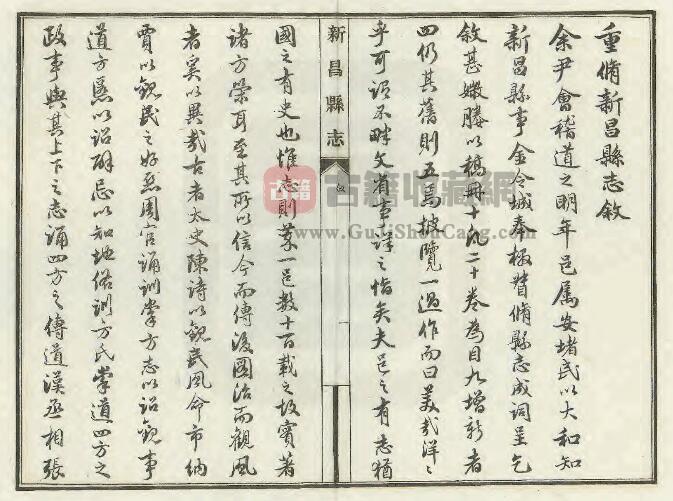 重脩新昌縣志敘
余尹會稽道之明年邑属安堵民以大和知
新昌縣事金令城奉檄督脩縣志成詞呈乞
敘甚牋以稿冊十凡二十卷為目九增新者
四仍其舊則五焉披覽一過作而曰美哉洋〻
乎可謂不畔文省事詳之恉矣夫邑之有志猶
新昌縣志
國之有史也惟志則萃一邑數十百載之故實著
諸方策耳至其所以信今而傳後圖治而觀風
者奚以異哉古者太史陳詩以觀民風命市納
賈以觀民之好惡周官誦訓掌方志以詔觀事
道方慝以詔辟忌以知地俗訓方氏掌道四方之
政事與其上下之志誦四方之傳道漢丞相張
古籍
古籍收藏網
www.GuJiShouCang.com